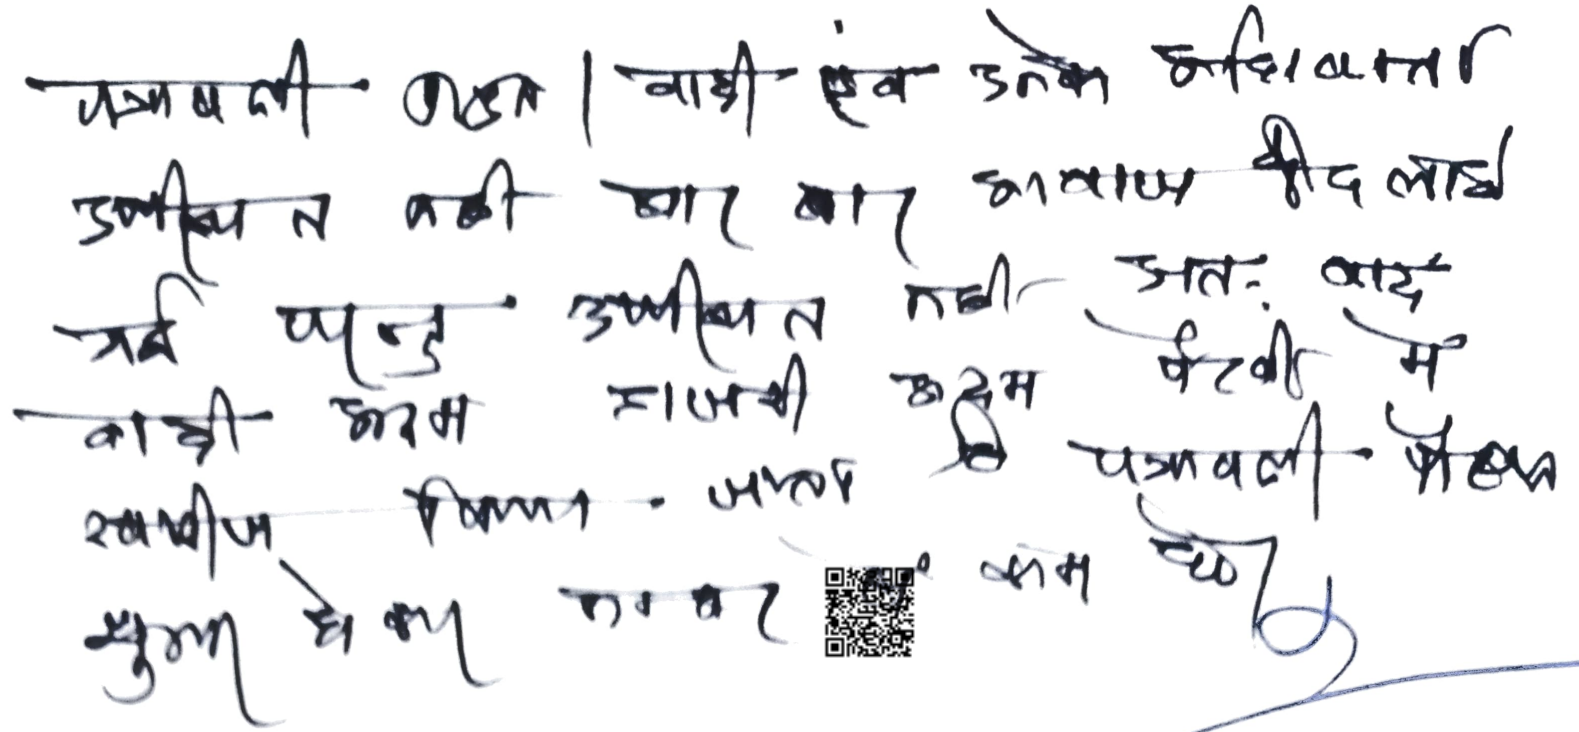 पत्रावली पेश। वादी एंव उनके अधिवक्ता
उपस्थित नही बार बार आवाज दिलाई
गई परन्तु उपस्थित नही अतः वाद
वादी अदम हाजरी अदम पैरवी में
खारीज किया जाता है पत्रावली फैसल
शुमार होकर नम्बर से कम हो